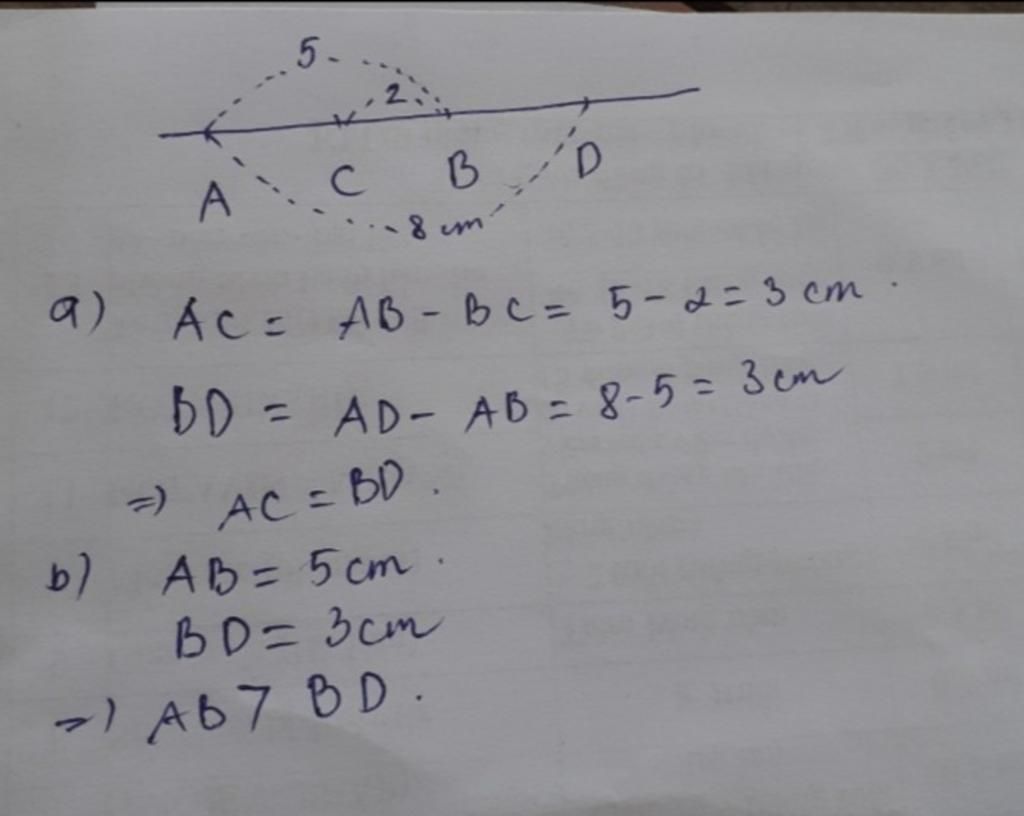 5
2
A C B D
8 cm
a) AC = AB - BC = 5 - 2 = 3 cm.
BD = AD - AB = 8 - 5 = 3 cm
=> AC = BD.
b) AB = 5 cm.
BD = 3 cm
=> AB > BD.